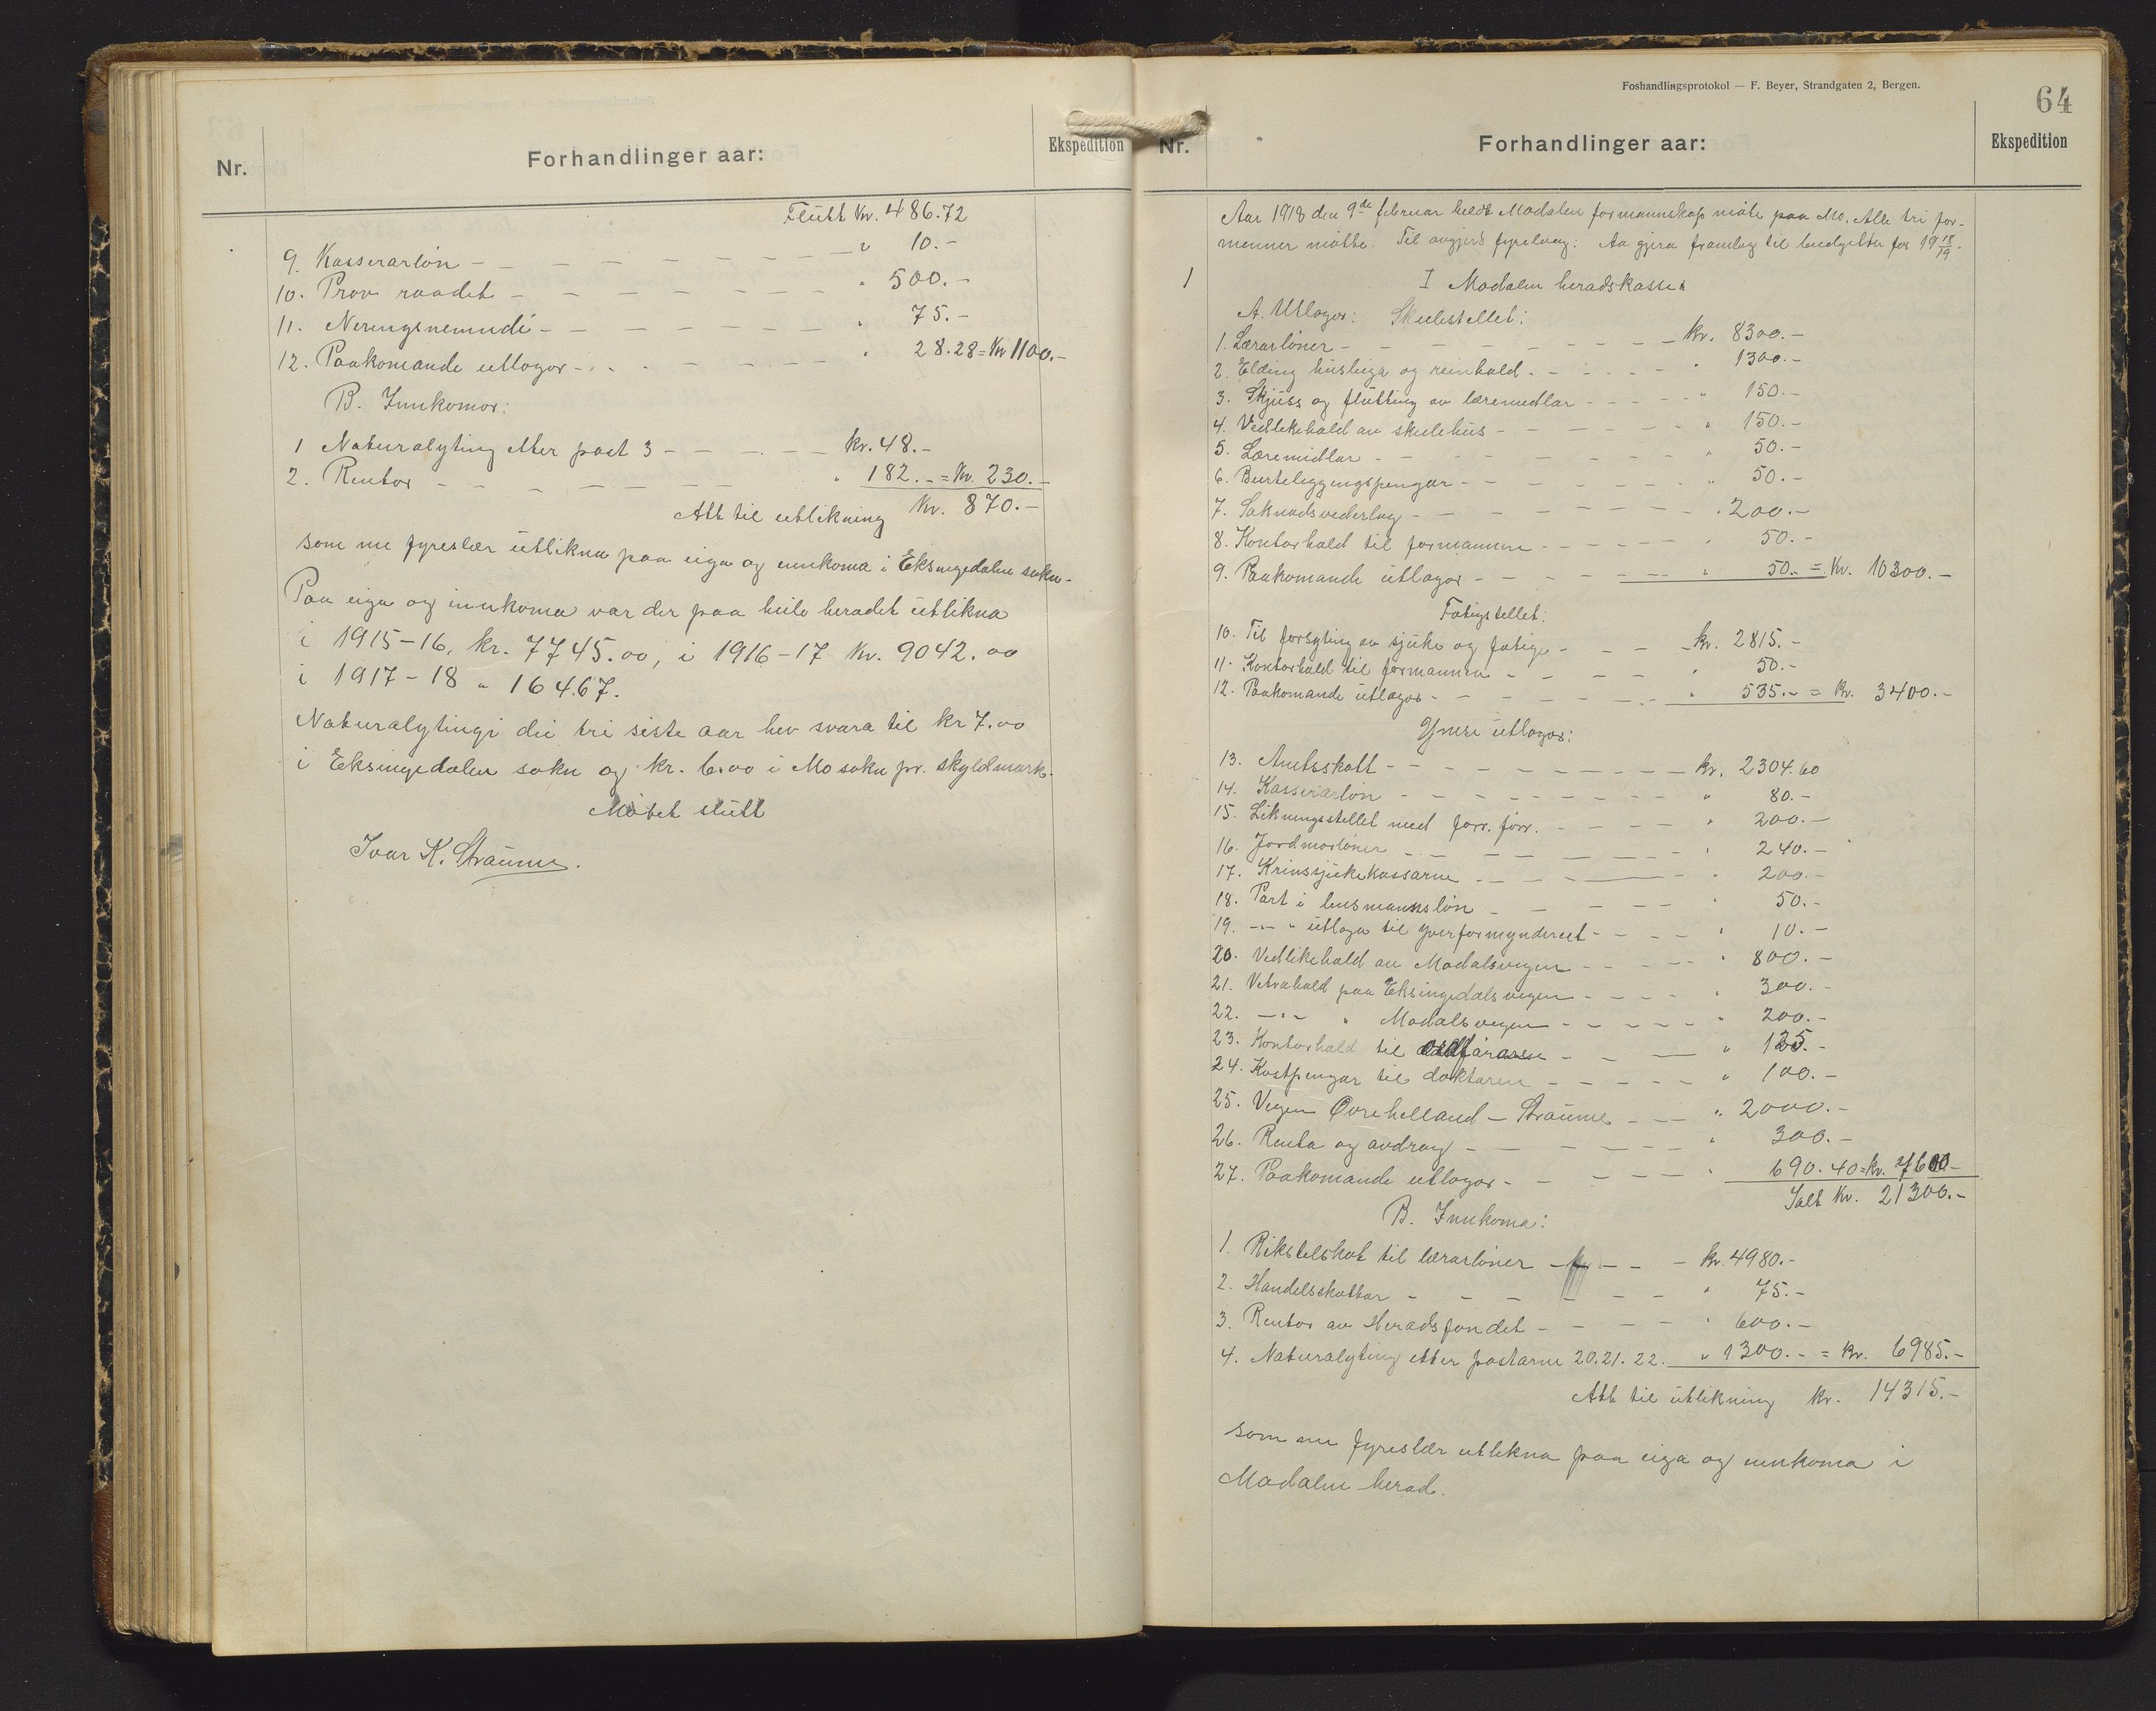 Nr.
Forhandlinger aar:
Ekspedition
Flutt kr. 486.72
9. Kasserarløn - - - - - - - - " 10.-
10. Prov. raadet - - - - - - - " 500.-
11. Neringsnemndi - - - - - - " 75.-
12. Paakomande utlogor - - - - - - " 28.28 = Kr 1100.-
B. Innkomor:
1 Naturalyting etter post 3 - - - - - kr. 48.-
2. Rentor - - - - - - - " 182.- = Kr. 230.-
Att til utlikning Kr. 870.-
som me fyreslær utlikna paa eiga og innkoma i Eksingedalen sokn.
Paa eiga og innkoma var der paa heile heradet utlikna
i 1915-16, kr. 7745.00, i 1916-17 Kr. 9042.00
i 1917-18 " 16467.
Naturalytingi dei tri siste aar hev svara til kr 7.00
i Eksingedalen sokn og kr. 6.00 i Mo sokn pr. skyldmark.
Møtet slutt
Ivar K. Straume.
Foshandlingsprotokol — F. Beyer, Strandgaten 2, Bergen.
64
Nr.
Forhandlinger aar:
Ekspedition
Aar 1918 den 9de februar heldt Modalen formannskap møte paa Mo. Alle tri for-
menner møtte. Til avgjerd fyrelaag: Aa gjera framlag til budgetter for 19 18/19.
1 I Modalen heradskasse
A. Utlogor: Skulestellet:
1. Lærarløner - - - - - - - - kr. 8300.-
2. Elding husleiga og reinhald - - - - - " 1300.-
3. Skjuss og flutting av læremidlar - - - - - " 150.-
4. Vedlikehald av skulehus - - - - - - " 150.-
5. Læremidlar - - - - - - - - " 50.-
6. Burteleggingspengar - - - - - - " 50.-
7. Saknadsvederlag - - - - - - - " 200.-
8. Kontorhald til formannen - - - - - " 50.-
9. Paakomande utlogor - - - - - - " 50.- = Kr. 10300.-
Fatigstellet:
10. Til forsyting av sjuke og fatige - - - - kr. 2815.-
11. Kontorhald til formannen - - - - " 50.-
12. Paakomande utlogor - - - - - - " 535.- = Kr. 3400.-
Ymse utlogor:
13. Amtsskatt - - - - - - - - kr. 2304.60
14. Kasserarløn - - - - - - - - " 80.-
15. Likningsstellet med forr. forr. - - - - " 200.-
16. Jordmorløner - - - - - - - " 240.-
17. Krinssjukekassarne - - - - - " 200.-
18. Part i lensmannsløn - - - - - " 50.-
19. -"- " utloga til yverformynderiet - - - - " 10.-
20. Vedlikehald av Modalsvegen - - - - " 800.-
21. Vetrahald paa Eksingedalsvegen - - - - " 300.-
22. -"- " Modalsvegen - - - - - " 200.-
23. Kontorhald til ordføraren - - - " 125.-
24. Kostpengar til doktaren - - - - - " 100.-
25. Vegen Øvrehelland - Straume - - - " 2000.-
26. Renta og avdrag - - - - - - " 300.-
27. Paakomande utlogor - - - - - - " 690.40 = kr. 7600.-
Ialt kr. 21300.-
B. Innkoma:
1. Rikstilskot til lærarløner - - - - kr. 4980.-
2. Handelsskattar - - - - - - " 75.-
3. Rentor av Heradsfondet - - - - " 600.-
4. Naturalyting etter postarne 20. 21. 22. " 1300.- = kr. 6985.-
Att til utlikning kr. 14315.-
som me fyreslær utlikna paa eiga og innkoma i
Modalen herad.